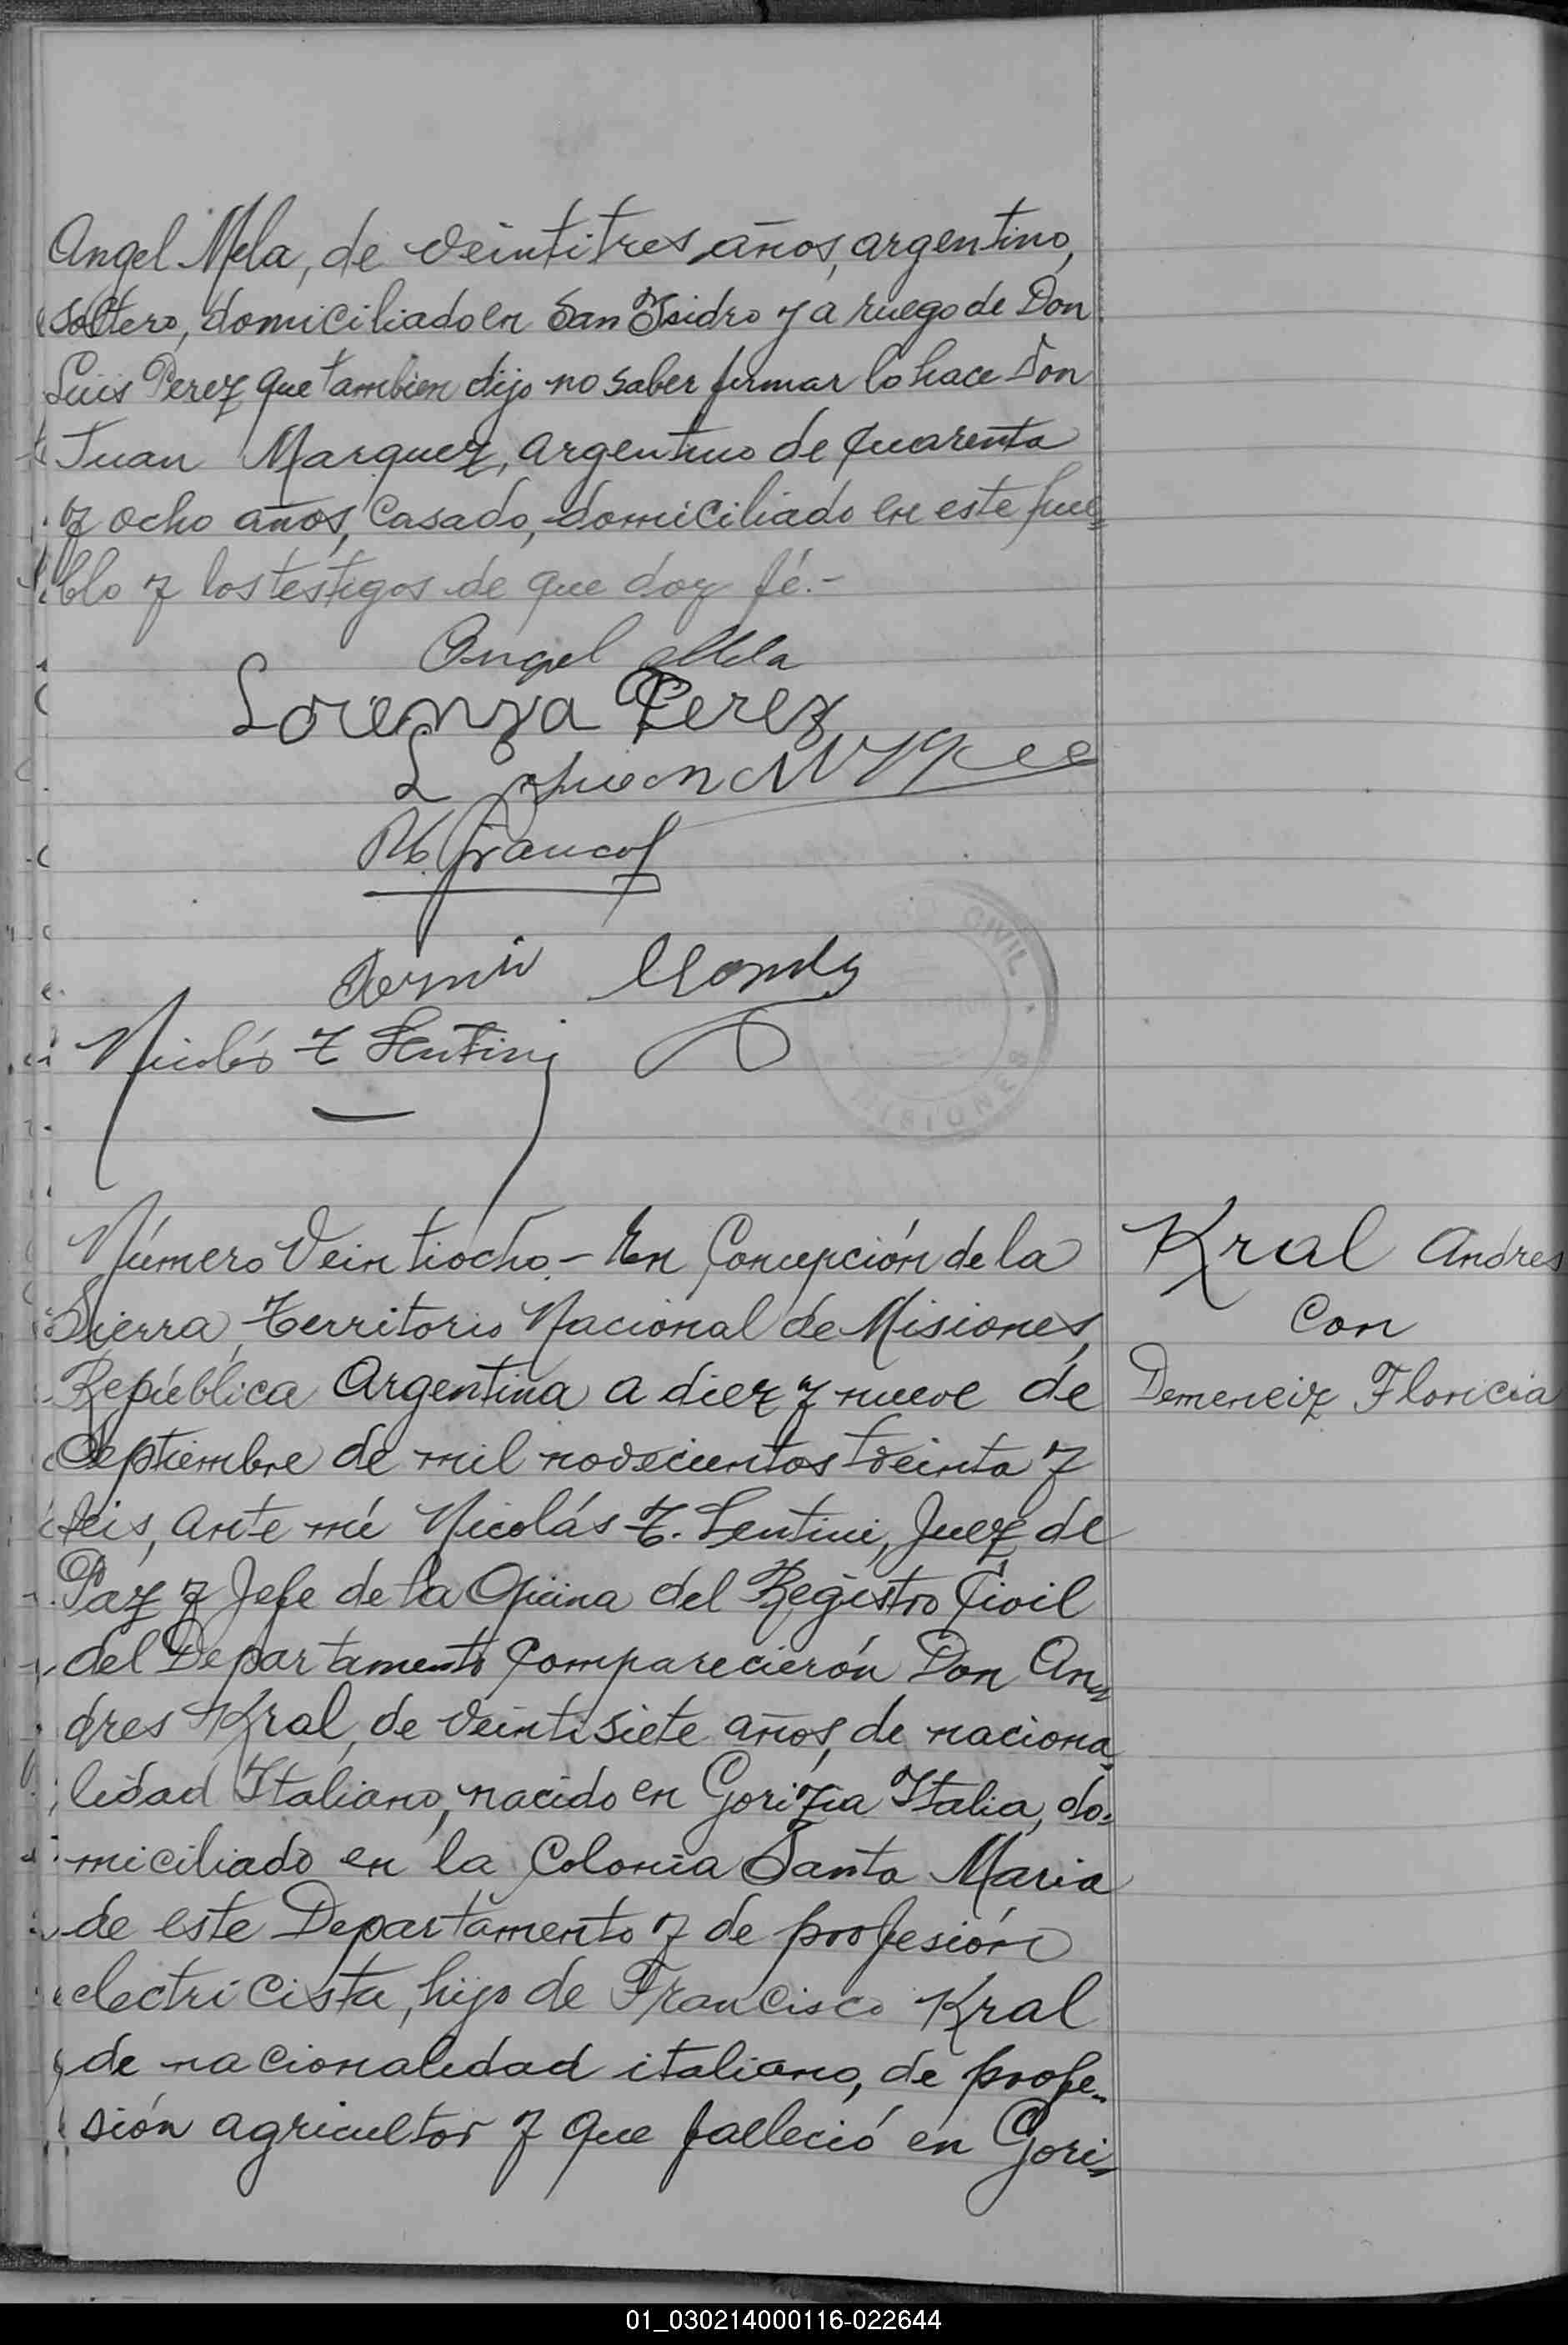 Angel Mela, de veintitres años, argentino,
soltero, domiciliado en San Isidro y a ruego de Don
Luis Perez que tambien dijo no saber firmar lo hace Don
Juan Marquez, argentino de cuarenta
y ocho años, casado, domiciliado en este pue=
blo y los testigos de que doy fé.-
Angel Mela
Lorenza Perez
Nicolás T Lentini
CIVIL
MISIONES
Número Veintiocho.- En Concepción de la
Sierra, Territorio Nacional de Misiones,
República Argentina a diez y nueve de
Septiembre de mil novecientos treinta y
seis, ante mi Nicolás T. Lentini, Juez de
Paz y Jefe de la Oficina del Registro Civil
del Departamento comparecierón Don An=
dres Kral, de veintisiete años, de naciona=
lidad Italiano, nacido en Gorizia Italia, do=
miciliado en la Colonia Santa Maria
de este Departamento y de profesión
electricista, hijo de Francisco Kral
de nacionalidad italiano, de profe=
sión agricultor y que falleció en Gori=
Kral Andres
Con
Demeneiz Floricia
01_030214000116-022644